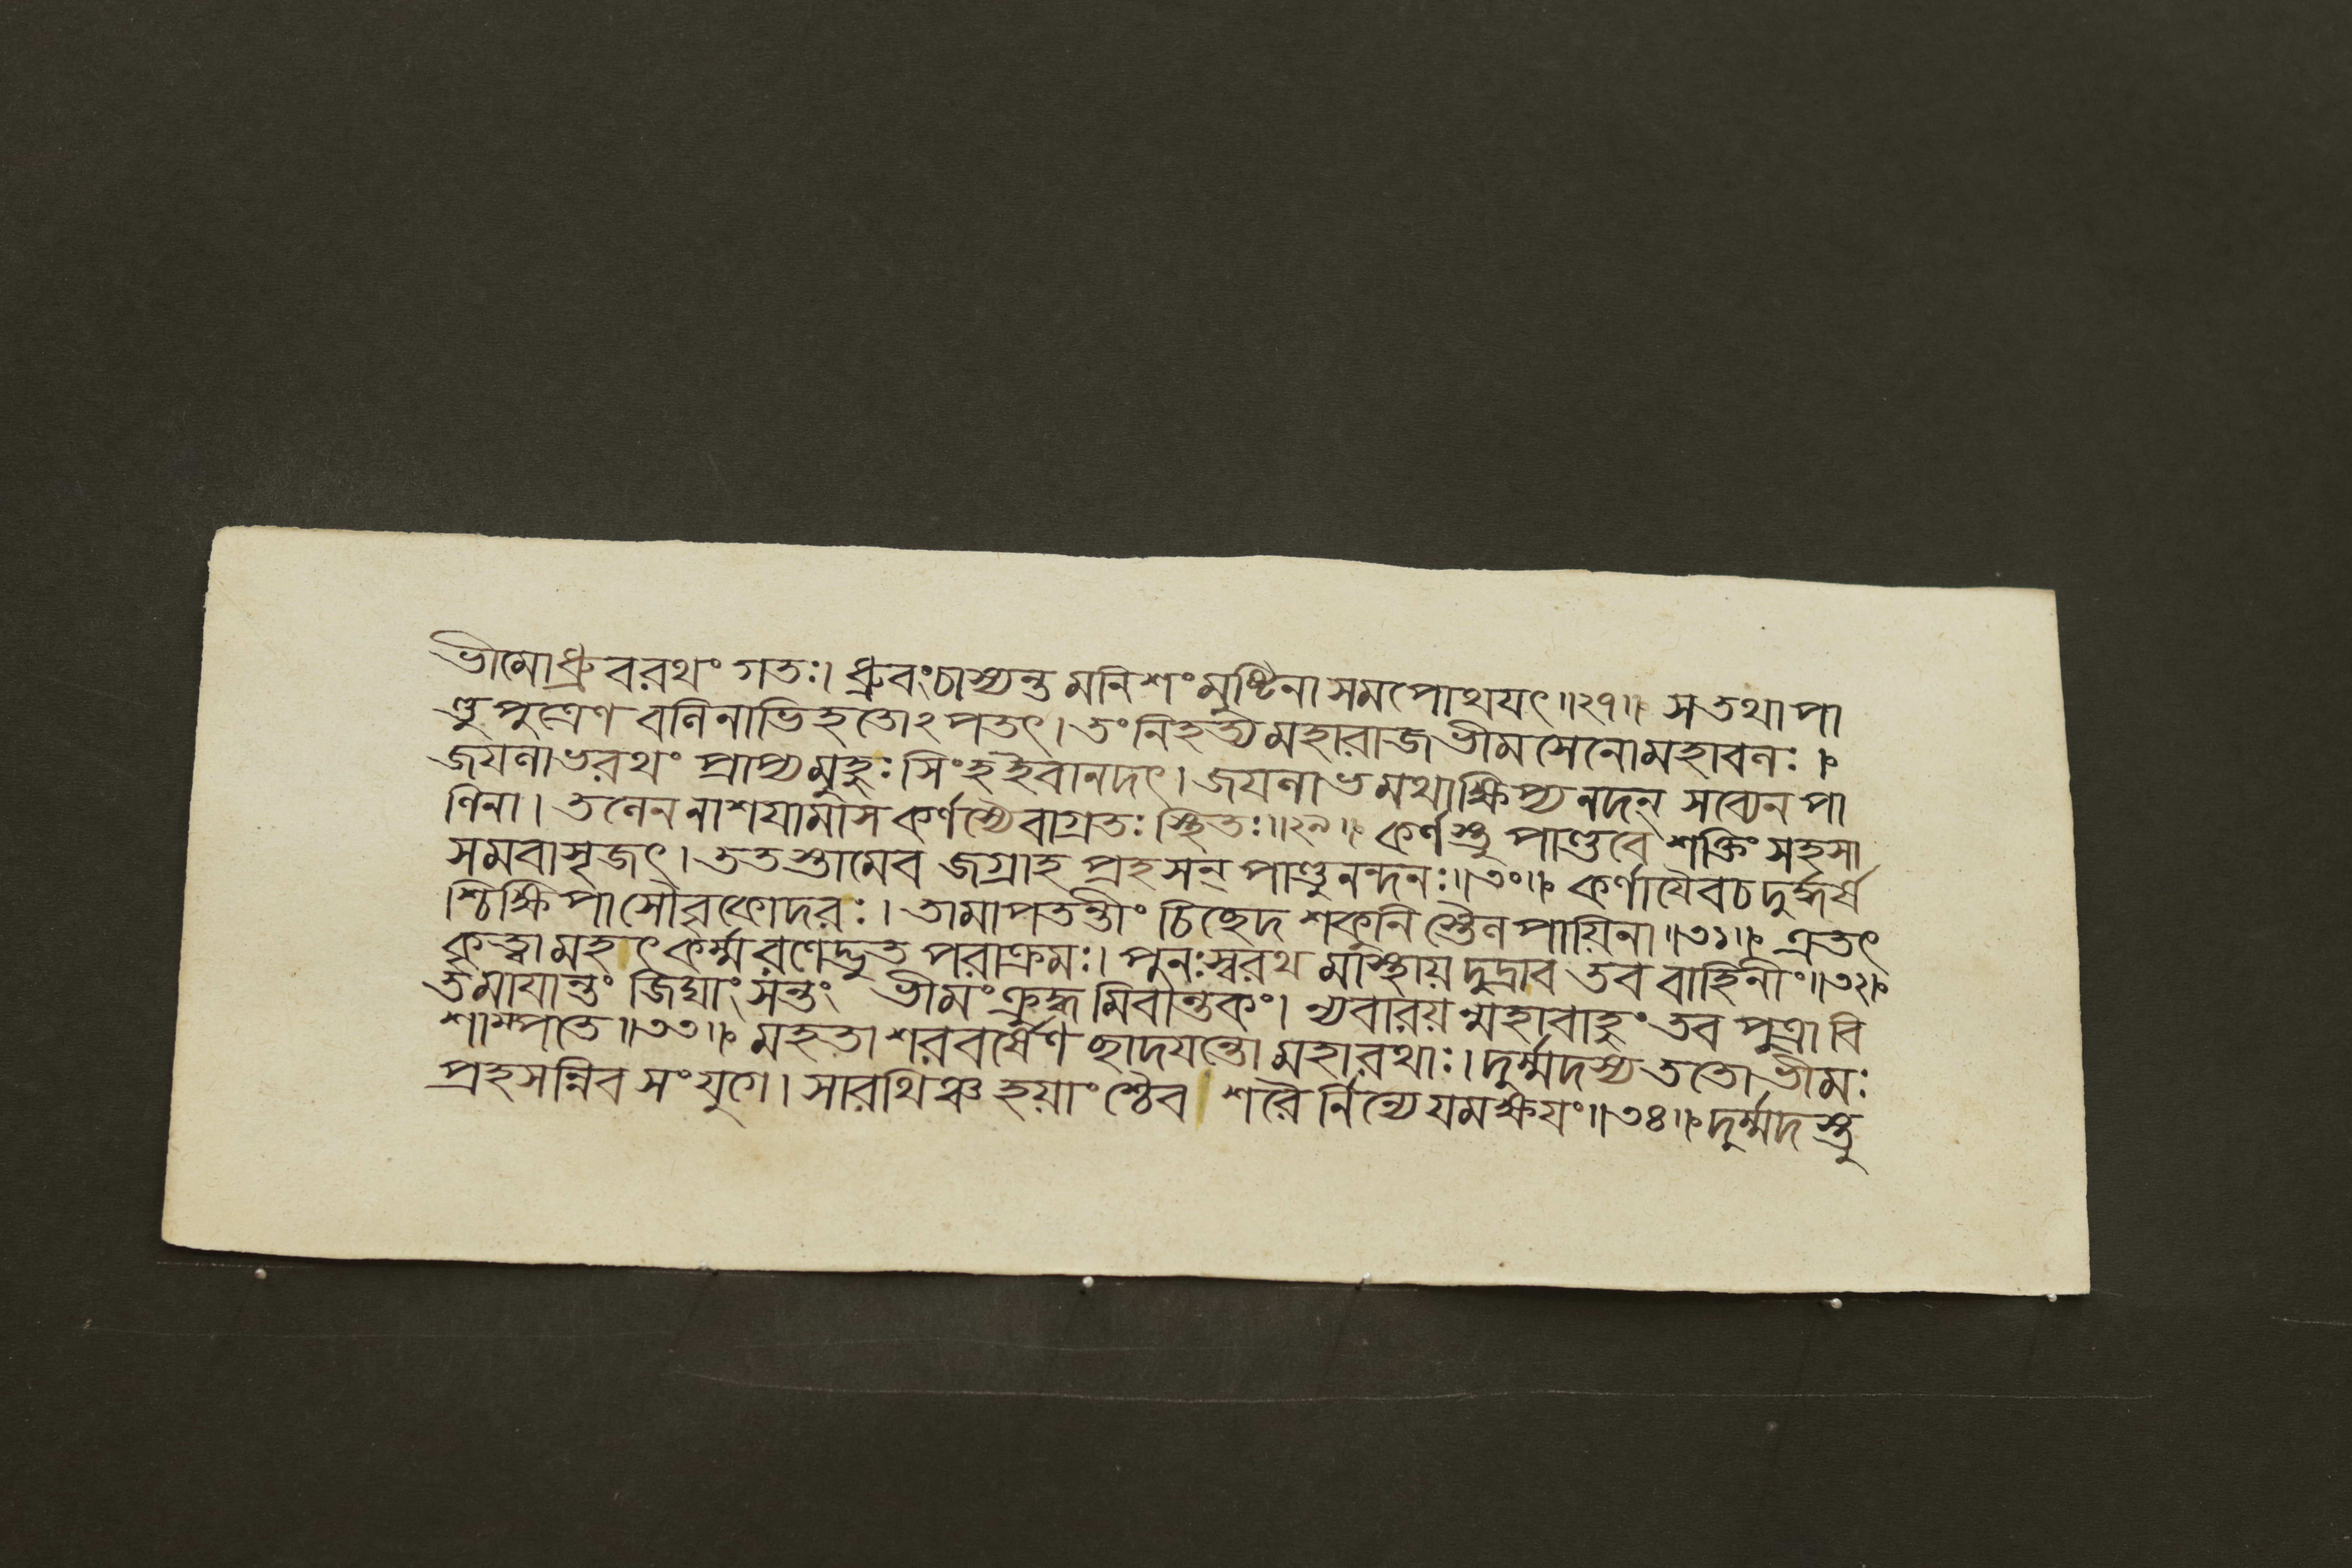 ভীমোধ্রুবরথং গতঃ। ধ্রুবংচাস্যন্ত মনিশং মুষ্টিনা সমপোথযৎ॥২৭॥ স তথা পা
ণ্ডু পুত্রেণ বলিনাভিহতোঽপতৎ। তং নিহত্য মহারাজ ভীমসেনো মহাবলঃ।
জযলাভরথং প্রাপ্য মুহুঃ সিংহইবানদৎ। জযলাভমথাক্ষিপ্য নদন্ সব্যেন পা
ণিনা। তলেন নাশযামাস কর্ণস্যৈবাগ্রতঃ স্থিতঃ॥২৯॥ কর্ণস্তু পাণ্ডবে শক্তিং সহসা
সমবাসৃজৎ। ততস্তামেব জগ্রাহ প্রহসন্ পাণ্ডুনন্দনঃ॥৩০॥ কর্ণাযৈবচ দুর্দ্ধর্ষ
শ্চিক্ষিপাসৌ বৃকোদরঃ। তামাপতন্তীং চিচ্ছেদ শকুনি স্তৈল পায়িনা॥৩১॥ এতৎ
কৃত্বা মহৎ কর্ম্ম রণেদ্ভুত পরাক্রমঃ। পুনঃস্বরথ মাস্থায় দুদ্রাব তব বাহিনীং॥৩২॥
তমাযান্তং জিঘাংসন্তং ভীমং ক্রুদ্ধ মিবান্তকং। ন্যবারয়ন্মহাবাহুং তব পুত্রা বি
শাম্পতে॥৩৩॥ মহতা শরবর্ষেণ ছাদযন্তো মহারথাঃ। দুর্ম্মদস্য ততো ভীমঃ
প্রহসন্নিব সংযুগে। সারথিঞ্চ হয়াংশ্চৈব শরৈর্নিন্যে যমক্ষযং॥৩৪॥ দুর্ম্মদ স্তু